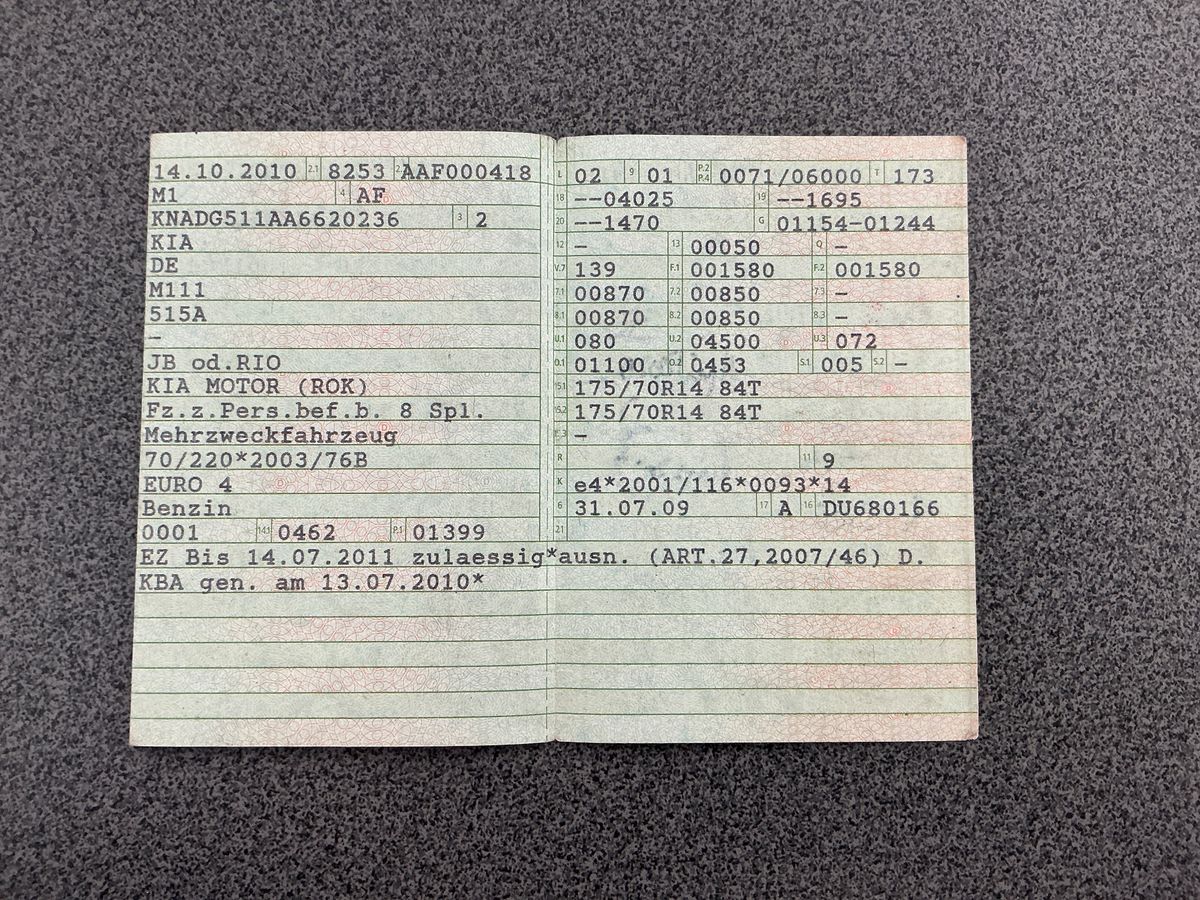 14.10.2010 2.1 8253 2. AAF000418
M1 4 AF
KNADG511AA6620236 3 2
KIA
DE
M111
515A
–
JB od.RIO
KIA MOTOR (ROK)
Fz.z.Pers.bef.b. 8 Spl.
Mehrzweckfahrzeug
70/220*2003/76B
EURO 4
Benzin
0001 14.1 0462 P.1 01399
L 02 9 01 P.2 P.4 0071/06000 T 173
18 --04025 19 --1695
20 --1470 G 01154-01244
12 – 13 00050 Q –
V.7 139 F.1 001580 F.2 001580
7.1 00870 7.2 00850 7.3 –
8.1 00870 8.2 00850 8.3 –
U.1 080 U.2 04500 U.3 072
O.1 01100 O.2 0453 S.1 005 S.2 –
15.1 175/70R14 84T
15.2 175/70R14 84T
15.3 –
R 11 9
K e4*2001/116*0093*14
6 31.07.09 17 A 16 DU680166
21
EZ Bis 14.07.2011 zulaessig*ausn. (ART.27,2007/46) D.
KBA gen. am 13.07.2010*